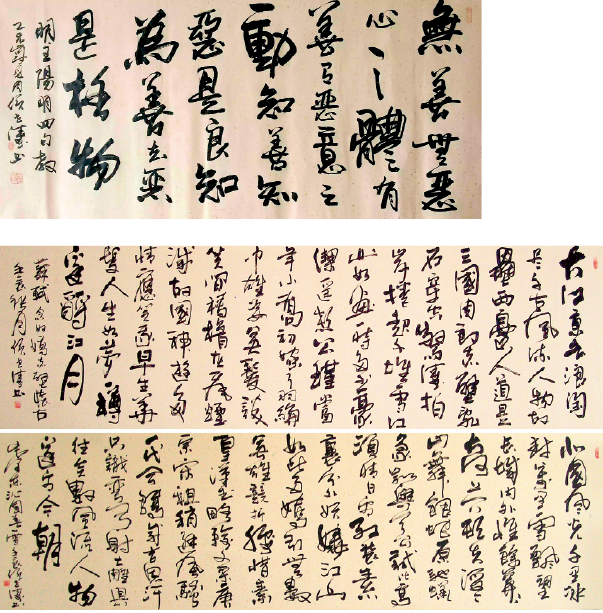 無善無惡
心之體有
善有惡意之
動知善知
惡是良知
為善去惡
是格物
明王陽明四句教
大江東去浪淘
盡千古風流人物故
壘西邊人道是
三國周郎赤壁亂
石穿空驚濤拍
岸捲起千堆雪江
山如畫一時多少豪
傑遙想公瑾當
年小喬初嫁了羽綸
巾雄姿英發談
笑間檣櫓灰飛煙
滅故國神遊多
情應笑我早生華
髮人生如夢一樽
還酹江月
蘇軾念奴嬌赤壁懷古
壬辰秋月
北國風光千里冰
封萬里雪飄望
長城內外惟餘莽
大河上下頓失滔
山舞銀蛇原馳蠟
象欲與天公試比高
須晴日看紅裝素
裹分外妖嬈江山
如此多嬌引無數
英雄競折腰惜秦
皇漢武略輸文采唐
宗宋祖稍遜風騷
一代天驕成吉思汗
只識彎弓射大雕俱
往矣數風流人物
還看今朝